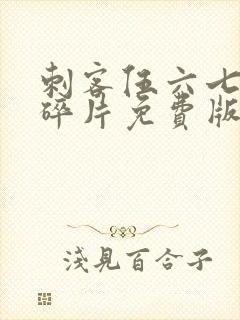 刺客伍六七
碎片免費版
淺見百合子